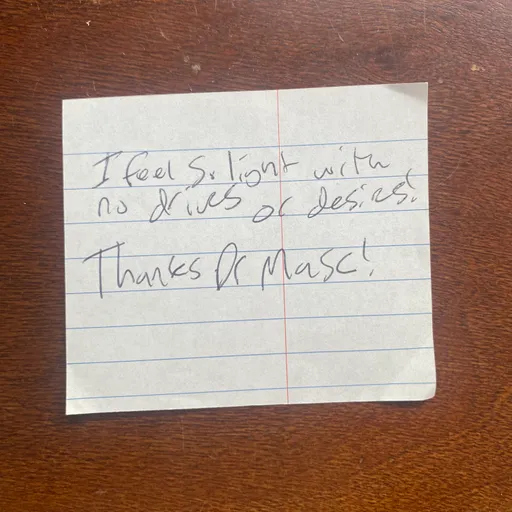 I feel so light with
no drives or desires!
Thanks Dr Masc!